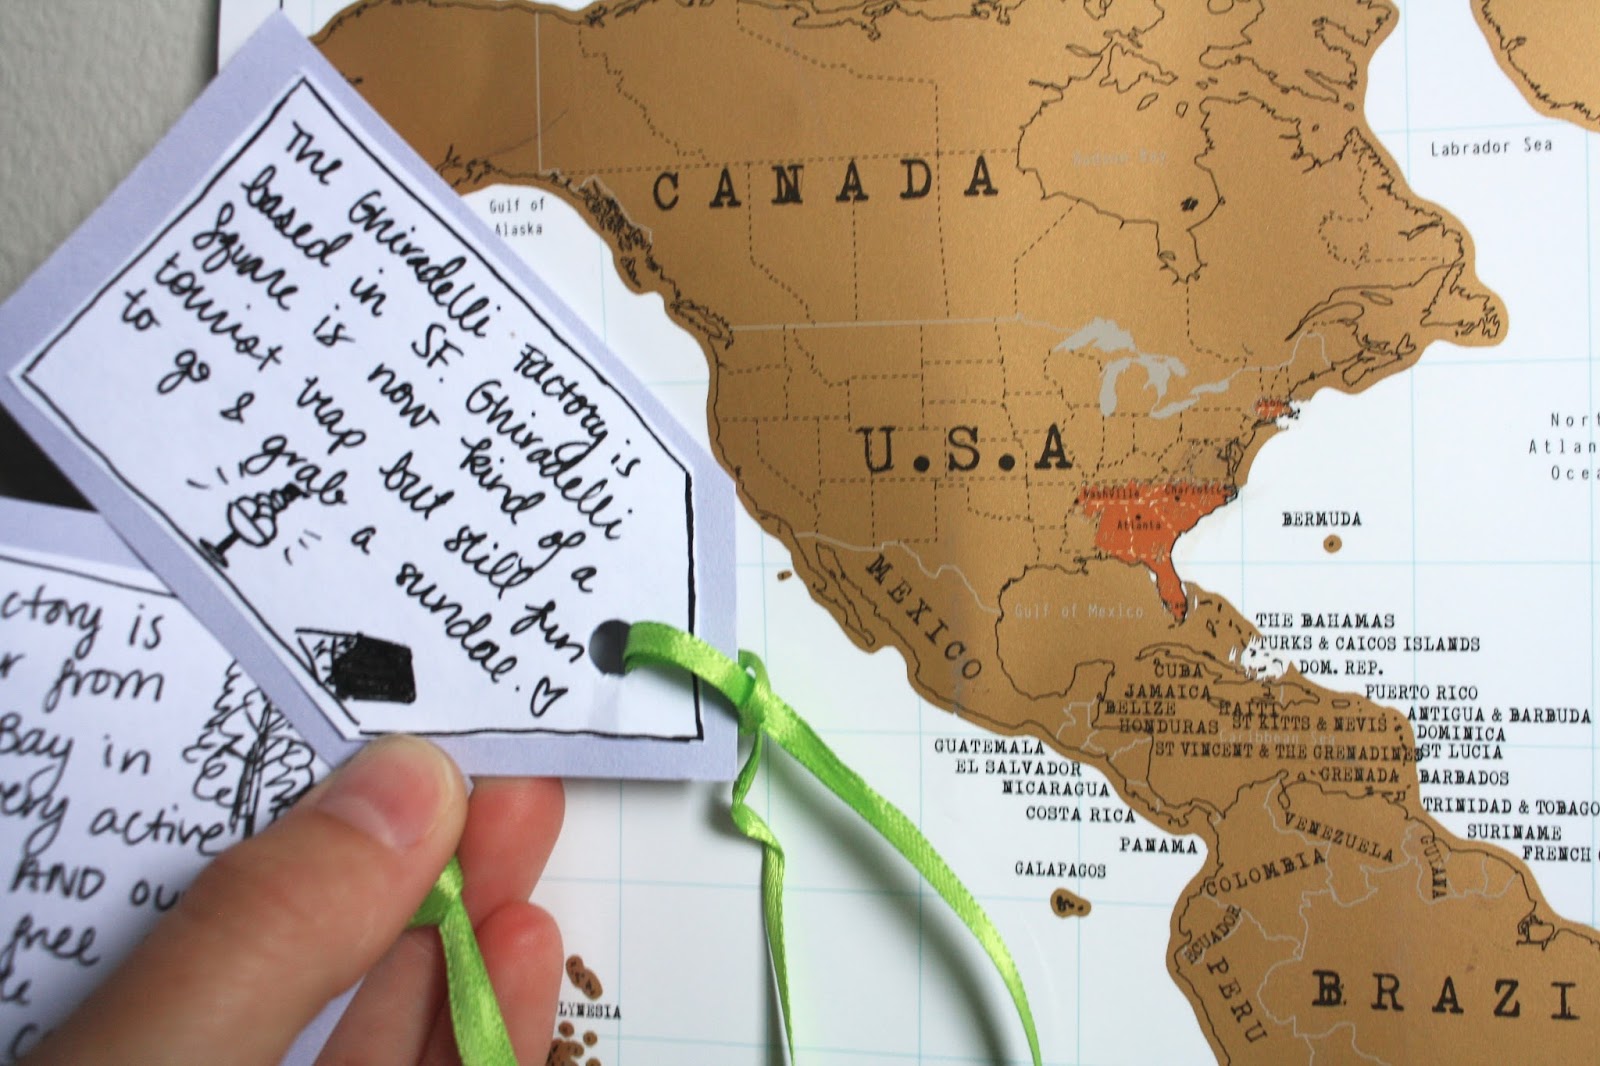 The Ghiradelli Factory is
based in SF. Ghiradelli
Square is now kind of a
tourist trap but still fun
to go & grab a sundae.
ctory is
from
Bay in
very active
AND ou
free
CANADA
U.S.A
MEXICO
Gulf of
Alaska
Hudson Bay
Labrador Sea
Nort
Atlan
Ocea
Nashville
Charlotte
Atlanta
Gulf of Mexico
BERMUDA
THE BAHAMAS
TURKS & CAICOS ISLANDS
DOM. REP.
CUBA
PUERTO RICO
JAMAICA
HAITI
ANTIGUA & BARBUDA
BELIZE
ST KITTS & NEVIS
HONDURAS
DOMINICA
Caribbean Sea
ST VINCENT & THE GRENADINES
ST LUCIA
GUATEMALA
EL SALVADOR
GRENADA
BARBADOS
NICARAGUA
COSTA RICA
TRINIDAD & TOBAGO
PANAMA
SURINAME
FRENCH
GALAPAGOS
VENEZUELA
GUIANA
COLOMBIA
ECUADOR
PERU
BRAZI
LYNESIA